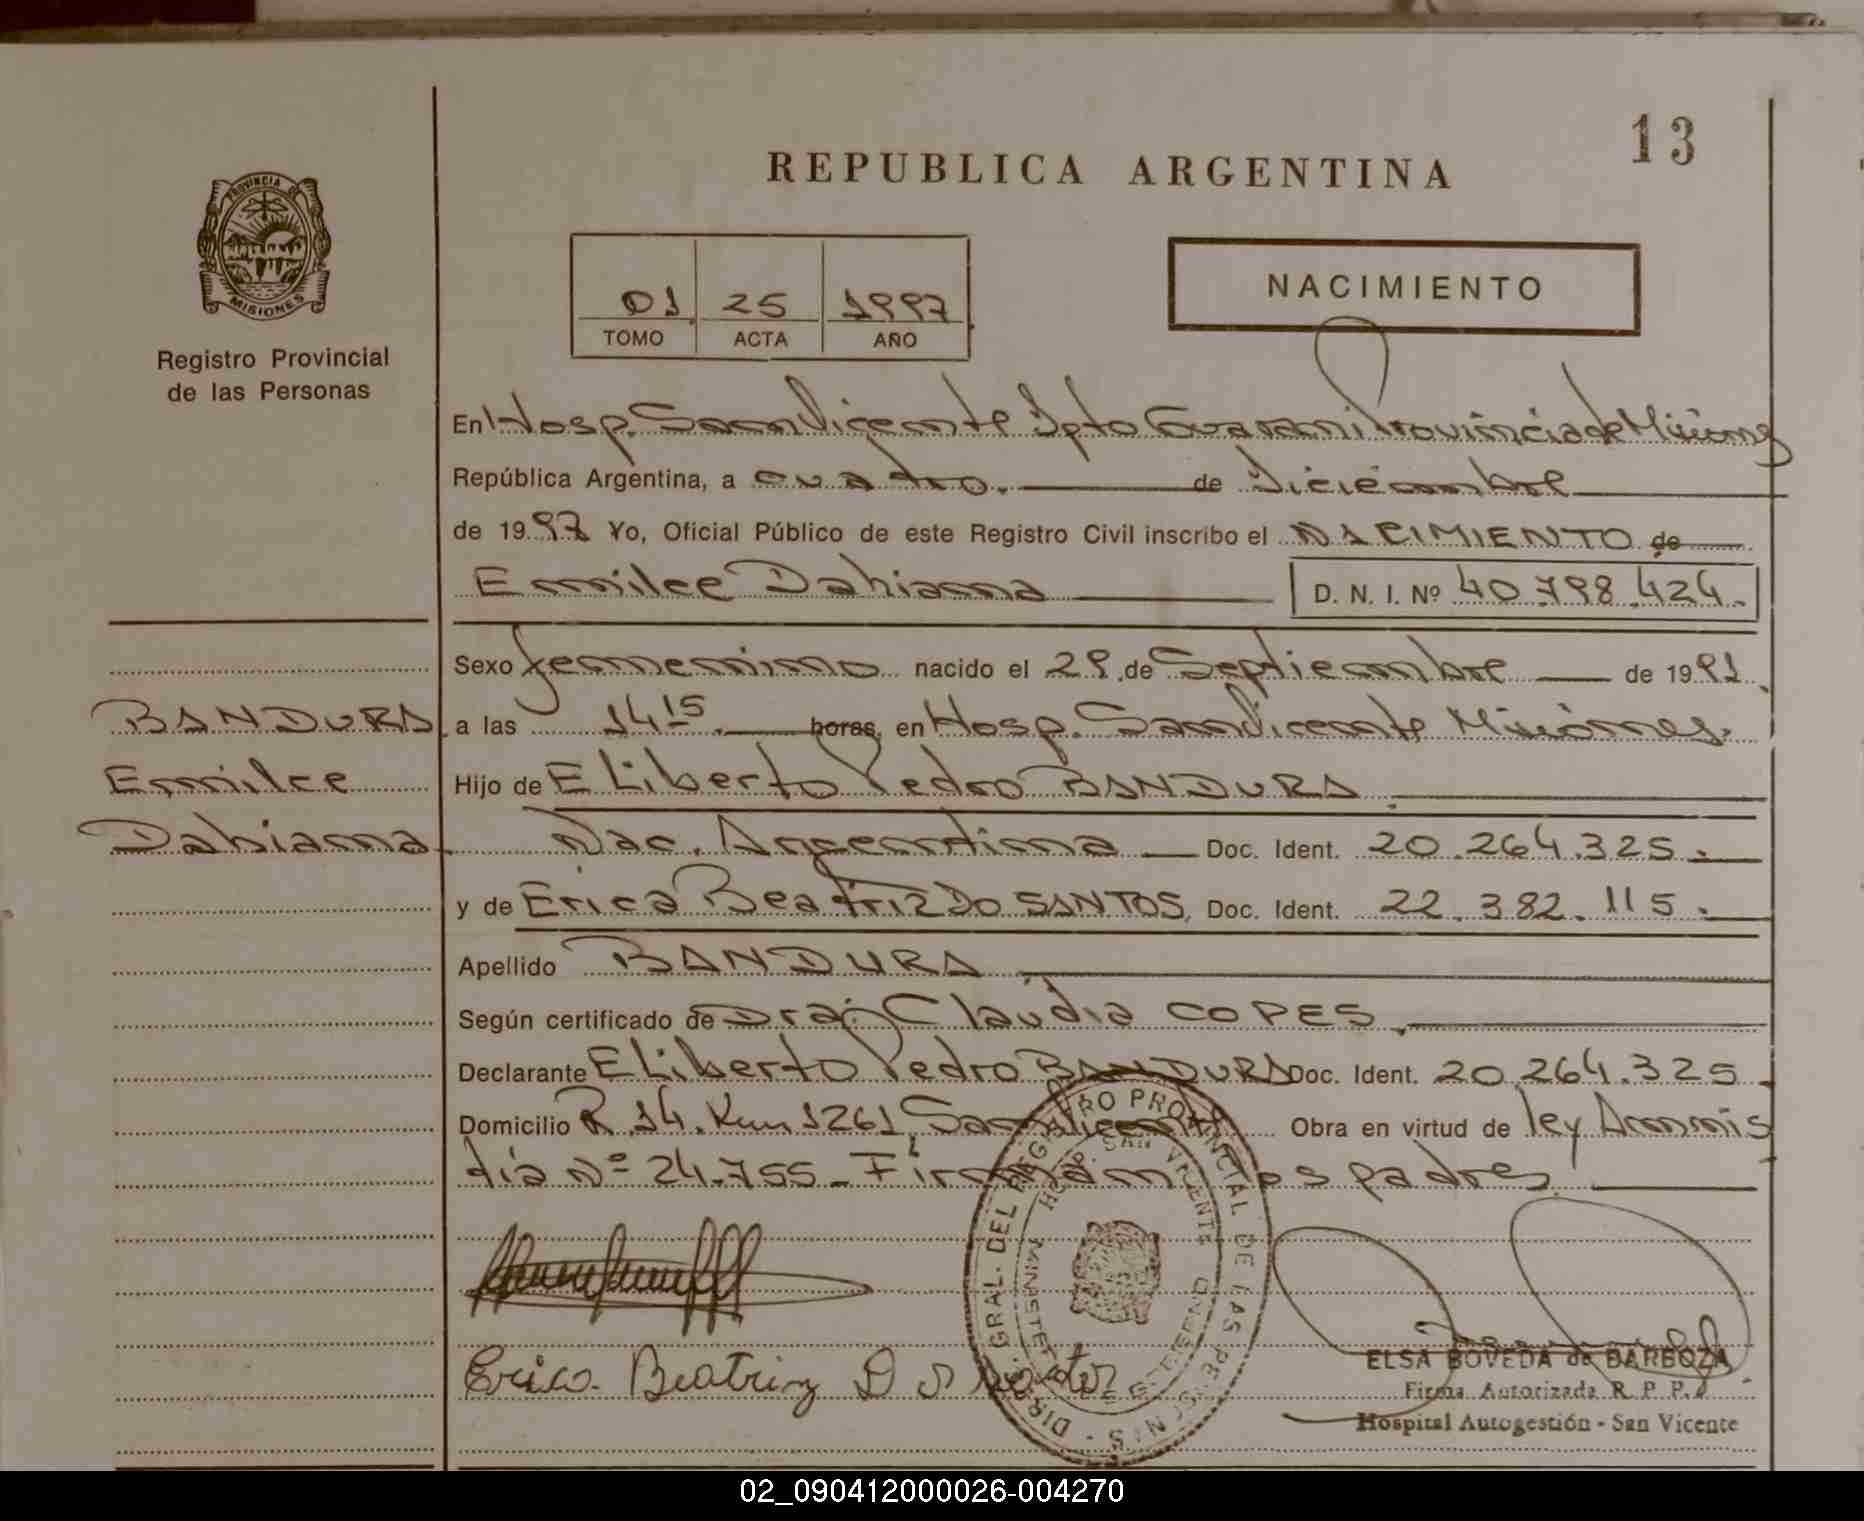 13
REPUBLICA ARGENTINA
PROVINCIA DE
MISIONES
Registro Provincial
de las Personas
01 25 1997
TOMO ACTA AÑO
NACIMIENTO
En Hosp. San Vicente Dpto Guarani Provincia de Misiones
República Argentina, a cuatro. de Diciembre
de 1997 Yo, Oficial Público de este Registro Civil inscribo el NACIMIENTO de
Emilce Dahiana D. N. I. Nº 40.798.424.
Sexo femenino nacido el 29 de Septiembre de 1991
BANDURA
Emilce
Dahiana
a las 14 15 horas, en Hosp. San Vicente Misiones.
Hijo de Eliberto Pedro BANDURA
Nac. Argentina Doc. Ident. 20.264.325.
y de Erica Beatriz DO SANTOS, Doc. Ident. 22.382.115.
Apellido BANDURA
Según certificado de Dra; Claudia COPES.
Declarante Eliberto Pedro BANDURA Doc. Ident. 20.264.325
Domicilio R. 14. Km 1261 San Vicente Obra en virtud de ley Amnis
tía Nº 24.755 - Firman los padres
DIR. GRAL. DEL REGISTRO PROVINCIAL DE LAS PERSONAS
HOSP. SAN VICENTE
Erica Beatriz D
ELSA BOVEDA de BARBOZA
Firma Autorizada R. P. P.
Hospital Autogestión - San Vicente
02_090412000026-004270